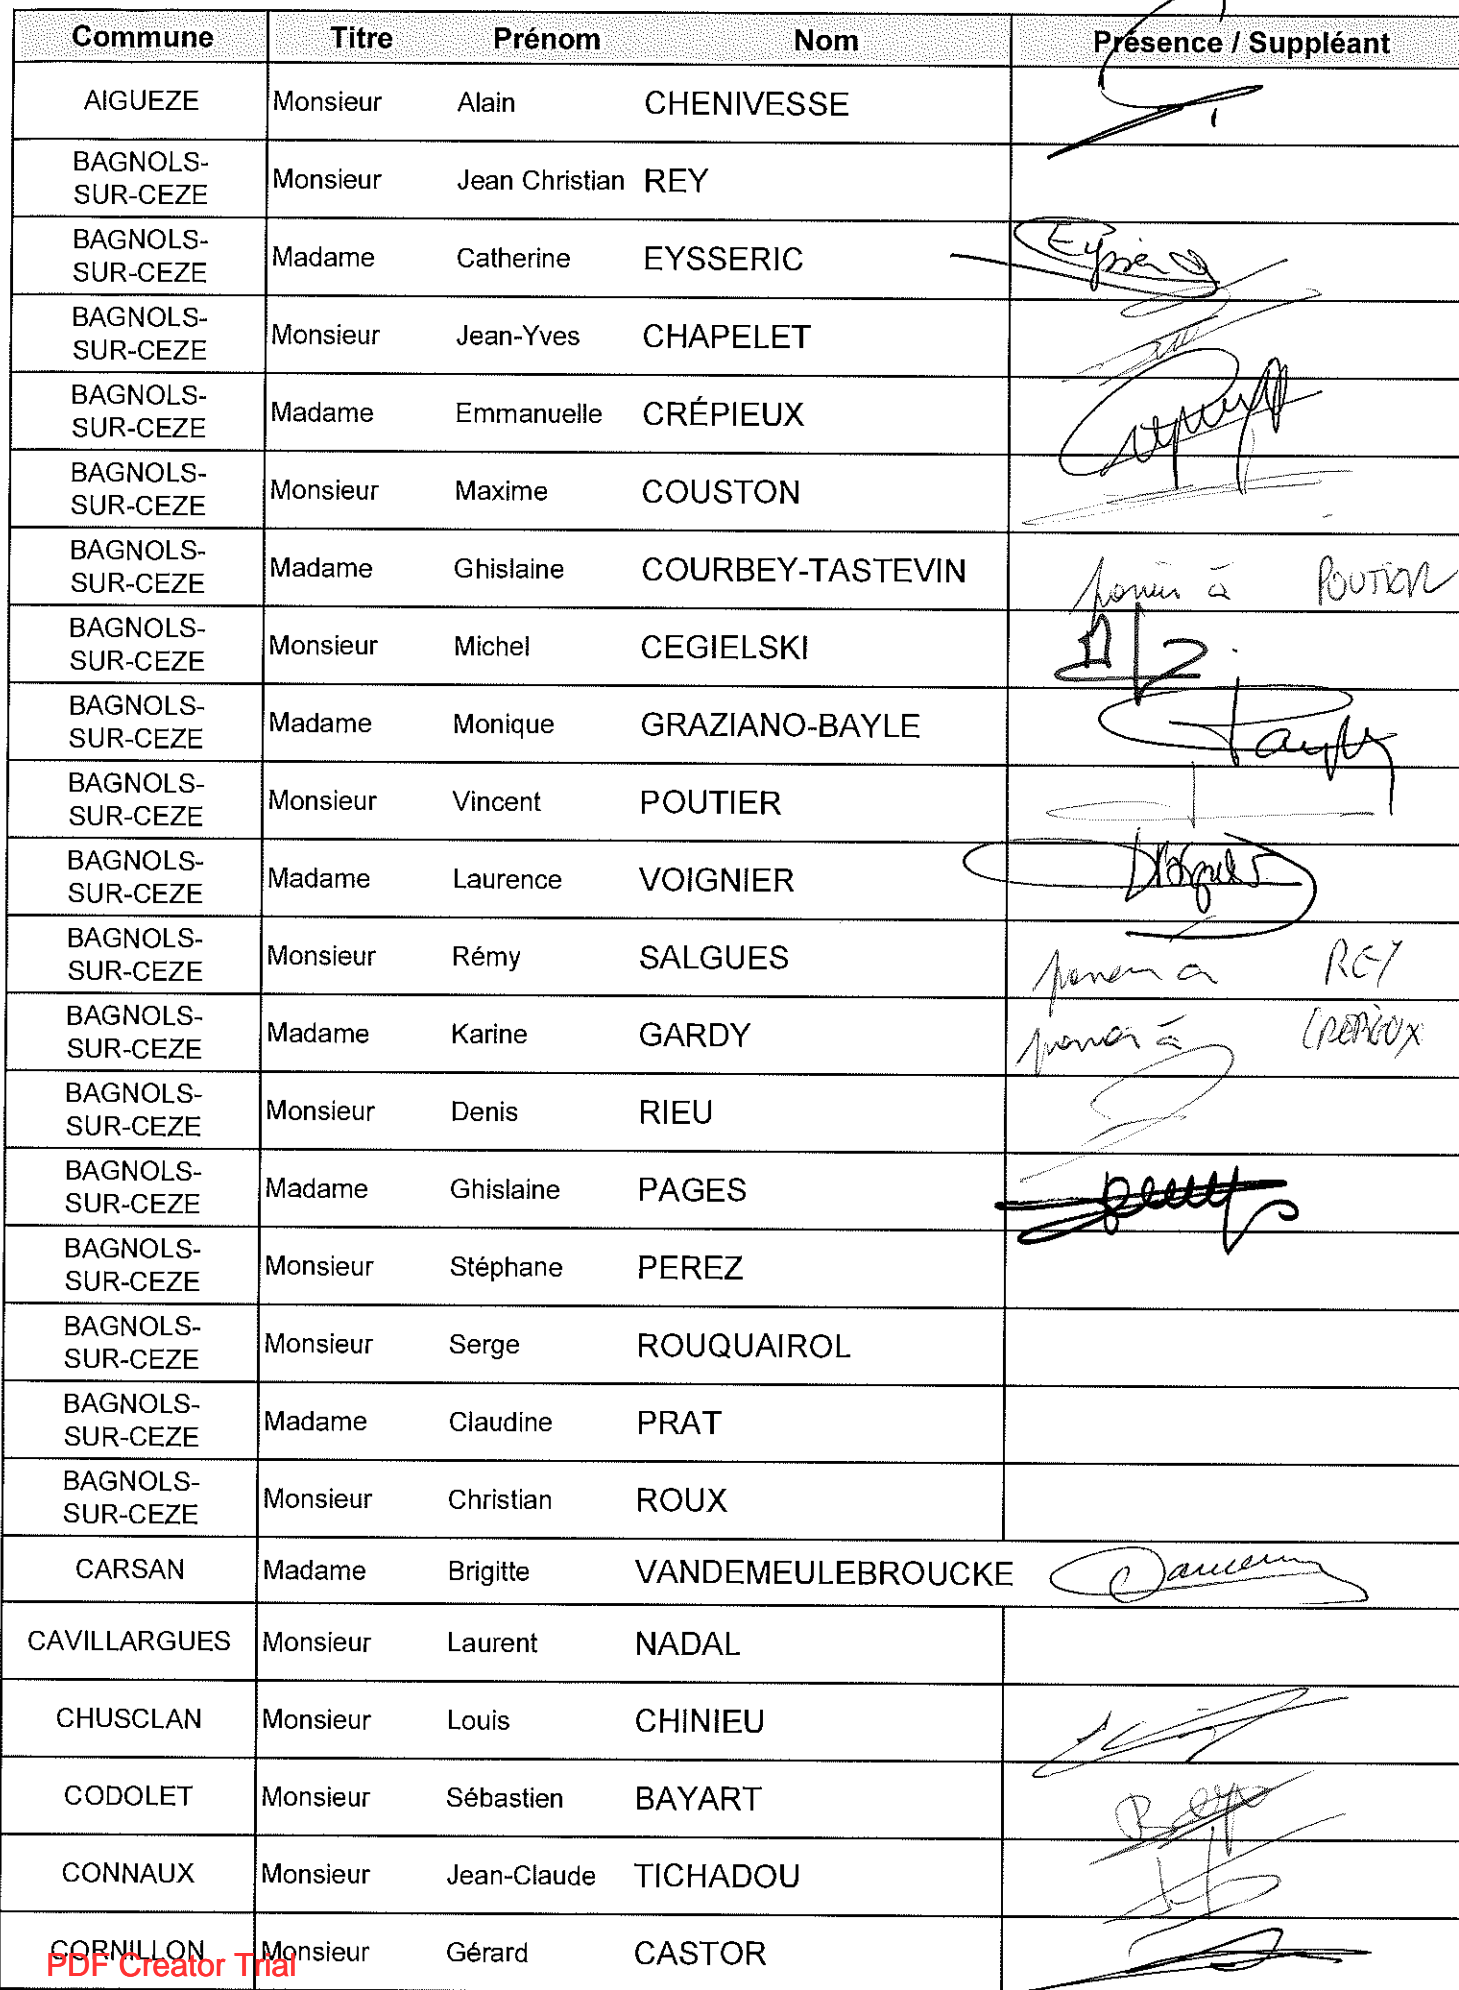 Commune Titre Prénom Nom Présence / Suppléant
AIGUEZE Monsieur Alain CHENIVESSE
BAGNOLS-
SUR-CEZE Monsieur Jean Christian REY
BAGNOLS-
SUR-CEZE Madame Catherine EYSSERIC
BAGNOLS-
SUR-CEZE Monsieur Jean-Yves CHAPELET
BAGNOLS-
SUR-CEZE Madame Emmanuelle CRÉPIEUX
BAGNOLS-
SUR-CEZE Monsieur Maxime COUSTON
BAGNOLS-
SUR-CEZE Madame Ghislaine COURBEY-TASTEVIN à POUTIER
BAGNOLS-
SUR-CEZE Monsieur Michel CEGIELSKI
BAGNOLS-
SUR-CEZE Madame Monique GRAZIANO-BAYLE
BAGNOLS-
SUR-CEZE Monsieur Vincent POUTIER
BAGNOLS-
SUR-CEZE Madame Laurence VOIGNIER
BAGNOLS-
SUR-CEZE Monsieur Rémy SALGUES REY
BAGNOLS-
SUR-CEZE Madame Karine GARDY à CREPIEUX
BAGNOLS-
SUR-CEZE Monsieur Denis RIEU
BAGNOLS-
SUR-CEZE Madame Ghislaine PAGES
BAGNOLS-
SUR-CEZE Monsieur Stéphane PEREZ
BAGNOLS-
SUR-CEZE Monsieur Serge ROUQUAIROL
BAGNOLS-
SUR-CEZE Madame Claudine PRAT
BAGNOLS-
SUR-CEZE Monsieur Christian ROUX
CARSAN Madame Brigitte VANDEMEULEBROUCKE
CAVILLARGUES Monsieur Laurent NADAL
CHUSCLAN Monsieur Louis CHINIEU
CODOLET Monsieur Sébastien BAYART
CONNAUX Monsieur Jean-Claude TICHADOU
CORNILLON Monsieur Gérard CASTOR
PDF Creator Trial